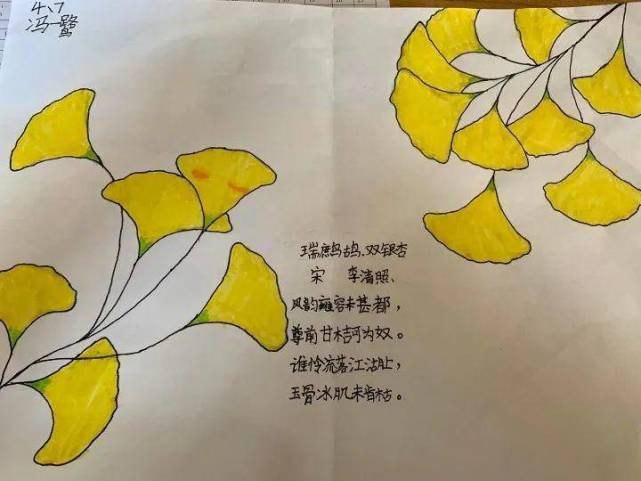 4、7
冯一鹭
瑞鹧鸪、双银杏
宋 李清照、
风韵雍容未甚都，
尊前甘桔可为奴。
谁怜流落江沽上，
玉骨冰肌未肯枯。